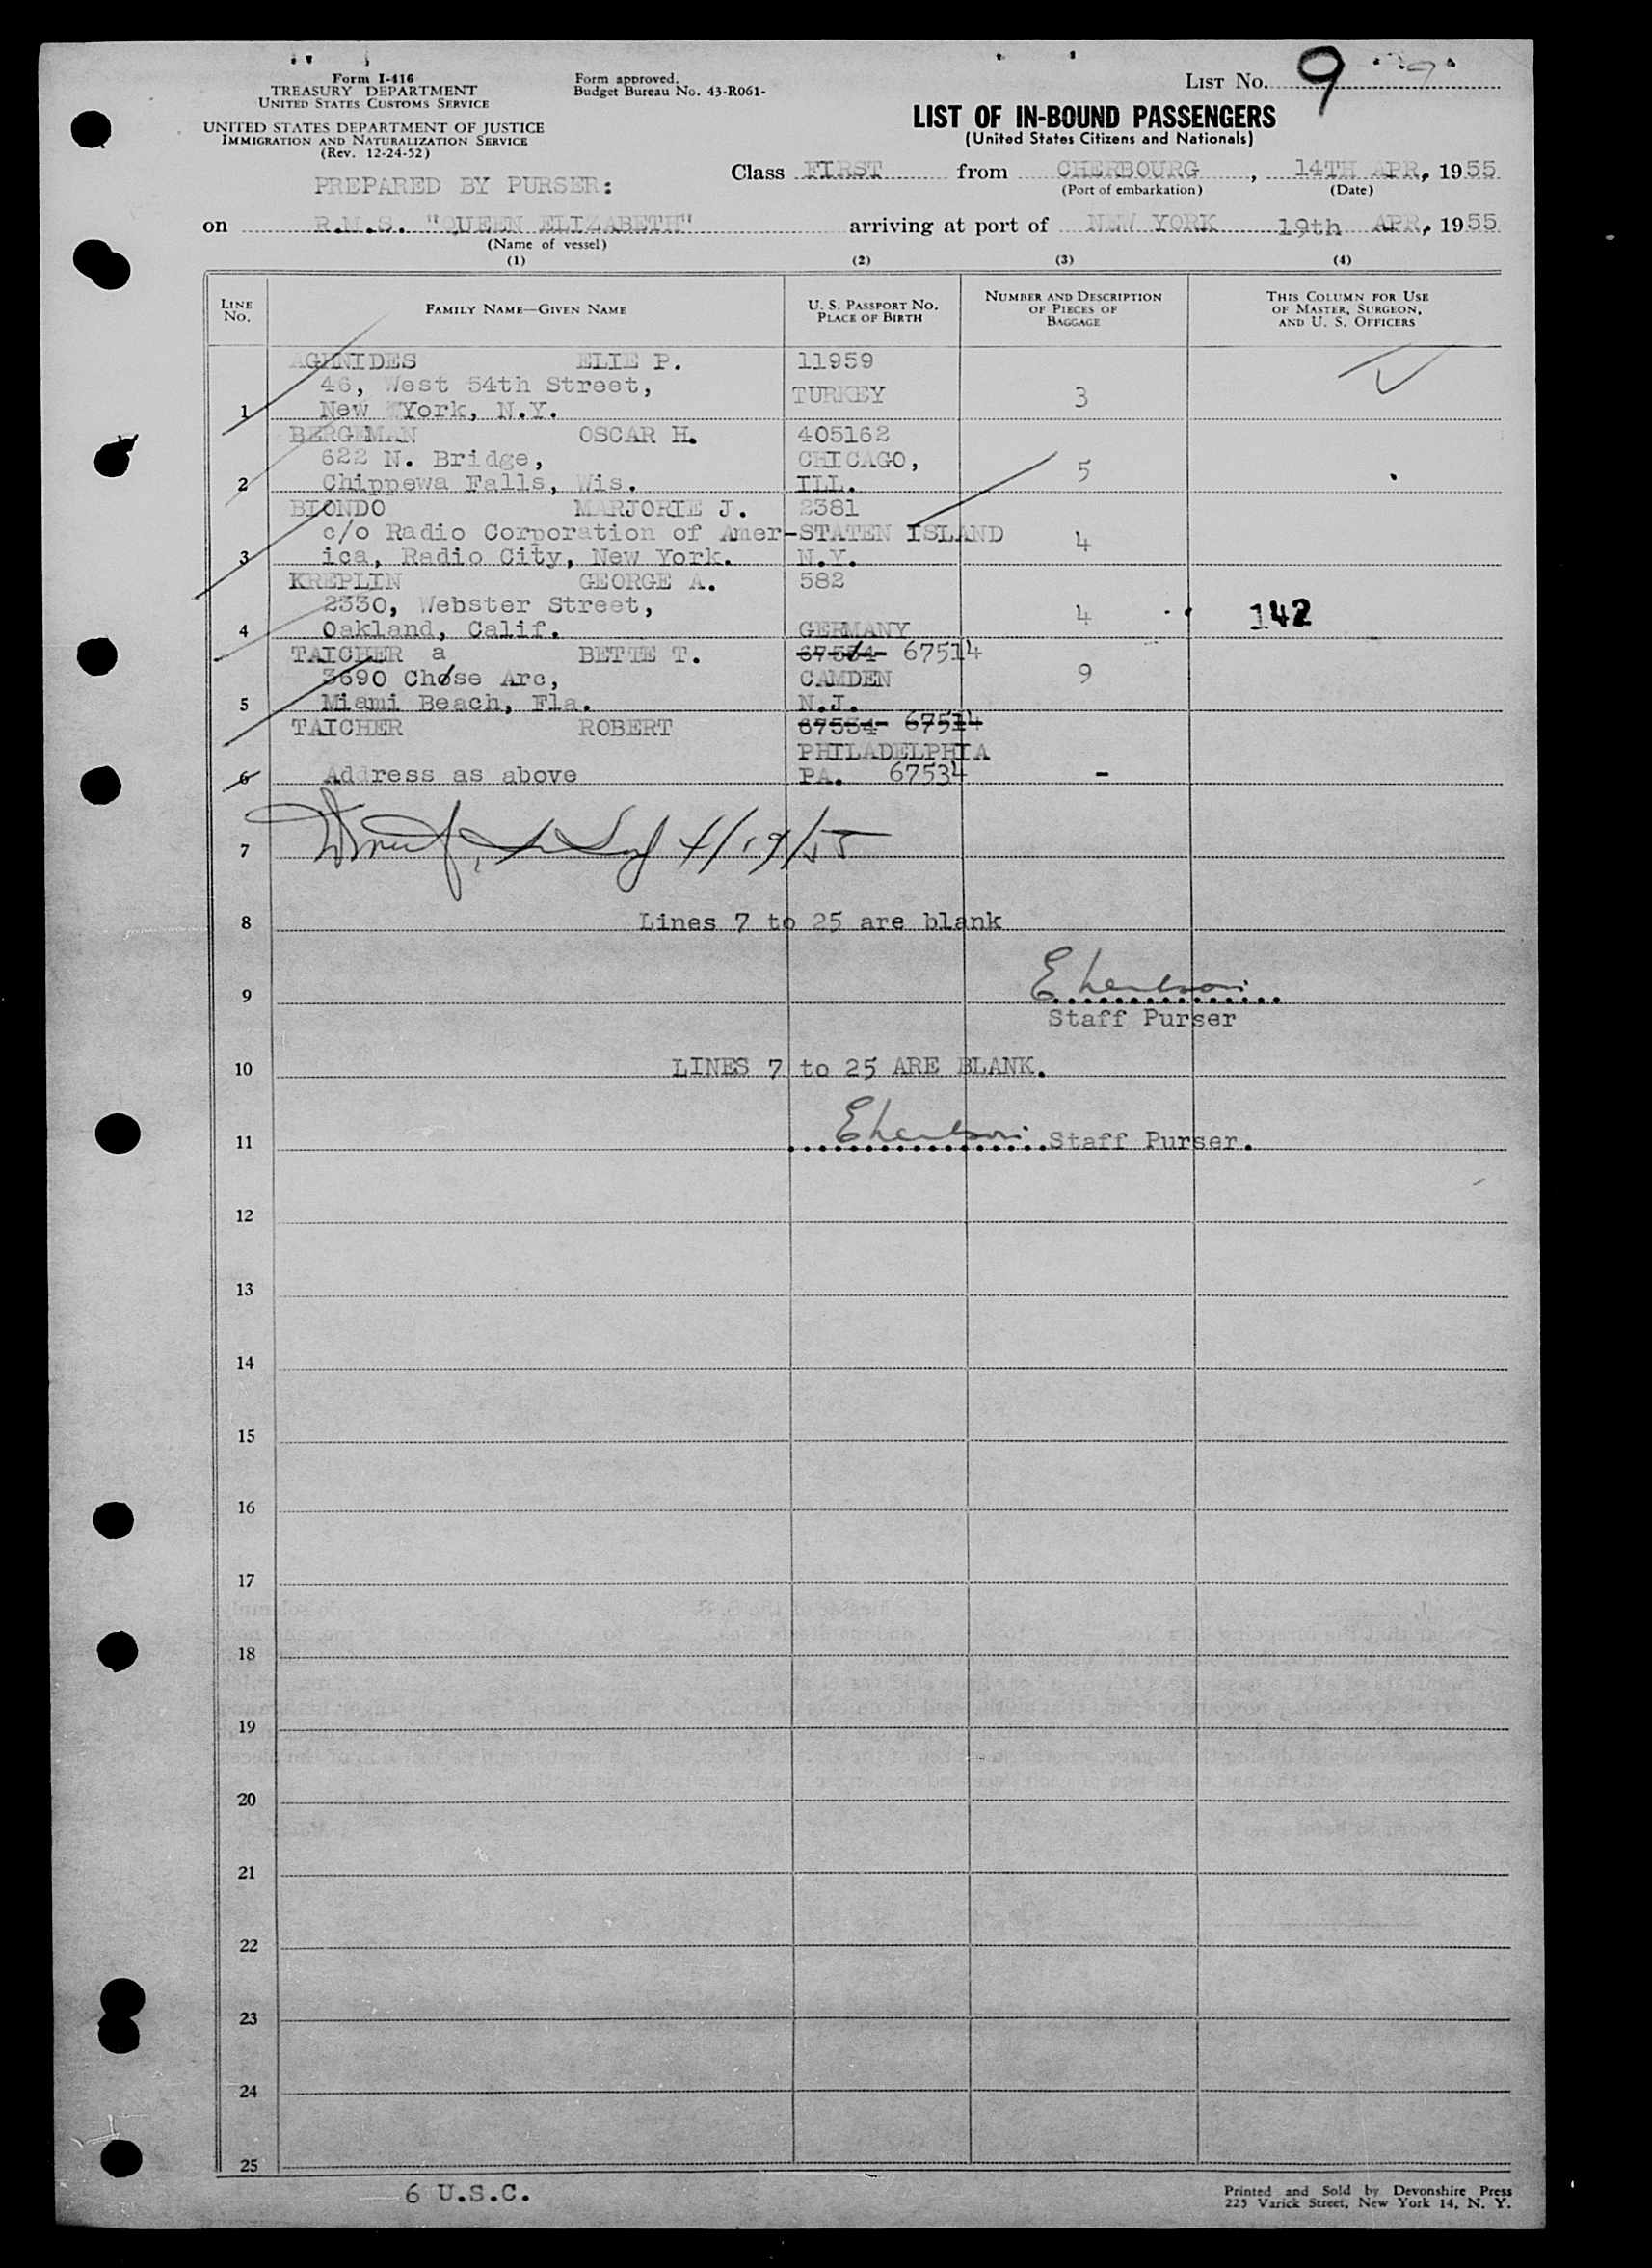 Form I-416
TREASURY DEPARTMENT
UNITED STATES CUSTOMS SERVICE
UNITED STATES DEPARTMENT OF JUSTICE
IMMIGRATION AND NATURALIZATION SERVICE
(Rev. 12-24-52)
Form approved.
Budget Bureau No. 43-R061-
LIST No. 9
LIST OF IN-BOUND PASSENGERS
(United States Citizens and Nationals)
PREPARED BY PURSER:
Class FIRST from CHERBOURG, 14TH APR, 1955
(Port of embarkation) (Date)
on R.M.S. "QUEEN ELIZABETH" arriving at port of NEW YORK 19th APR, 1955
(Name of vessel)
(1) (2) (3) (4)
LINE No. FAMILY NAME—GIVEN NAME U. S. PASSPORT NO. PLACE OF BIRTH NUMBER AND DESCRIPTION OF PIECES OF BAGGAGE THIS COLUMN FOR USE OF MASTER, SURGEON, AND U. S. OFFICERS
AGHNIDES ELIE P. 11959
46, West 54th Street, TURKEY 3
1 New York, N.Y.
BERGEMAN OSCAR H. 405162
622 N. Bridge, CHICAGO, 5
2 Chippewa Falls, Wis. ILL.
BIONDO MARJORIE J. 2381
c/o Radio Corporation of Amer- STATEN ISLAND 4
3 ica, Radio City, New York. N.Y.
KREPLIN GEORGE A. 582
2330, Webster Street, 4 142
4 Oakland, Calif. GERMANY
TAICHER a BETTE T. 67534 67514
3690 Chose Arc, CAMDEN 9
5 Miami Beach, Fla. N.J.
TAICHER ROBERT 67534 67514
PHILADELPHIA
6 Address as above PA. 67534 -
7 4/19/55
8 Lines 7 to 25 are blank
9
Staff Purser
10 LINES 7 to 25 ARE BLANK.
11 Staff Purser.
12
13
14
15
16
17
18
19
20
21
22
23
24
25
6 U.S.C.
Printed and Sold by Devonshire Press
225 Varick Street, New York 14, N. Y.